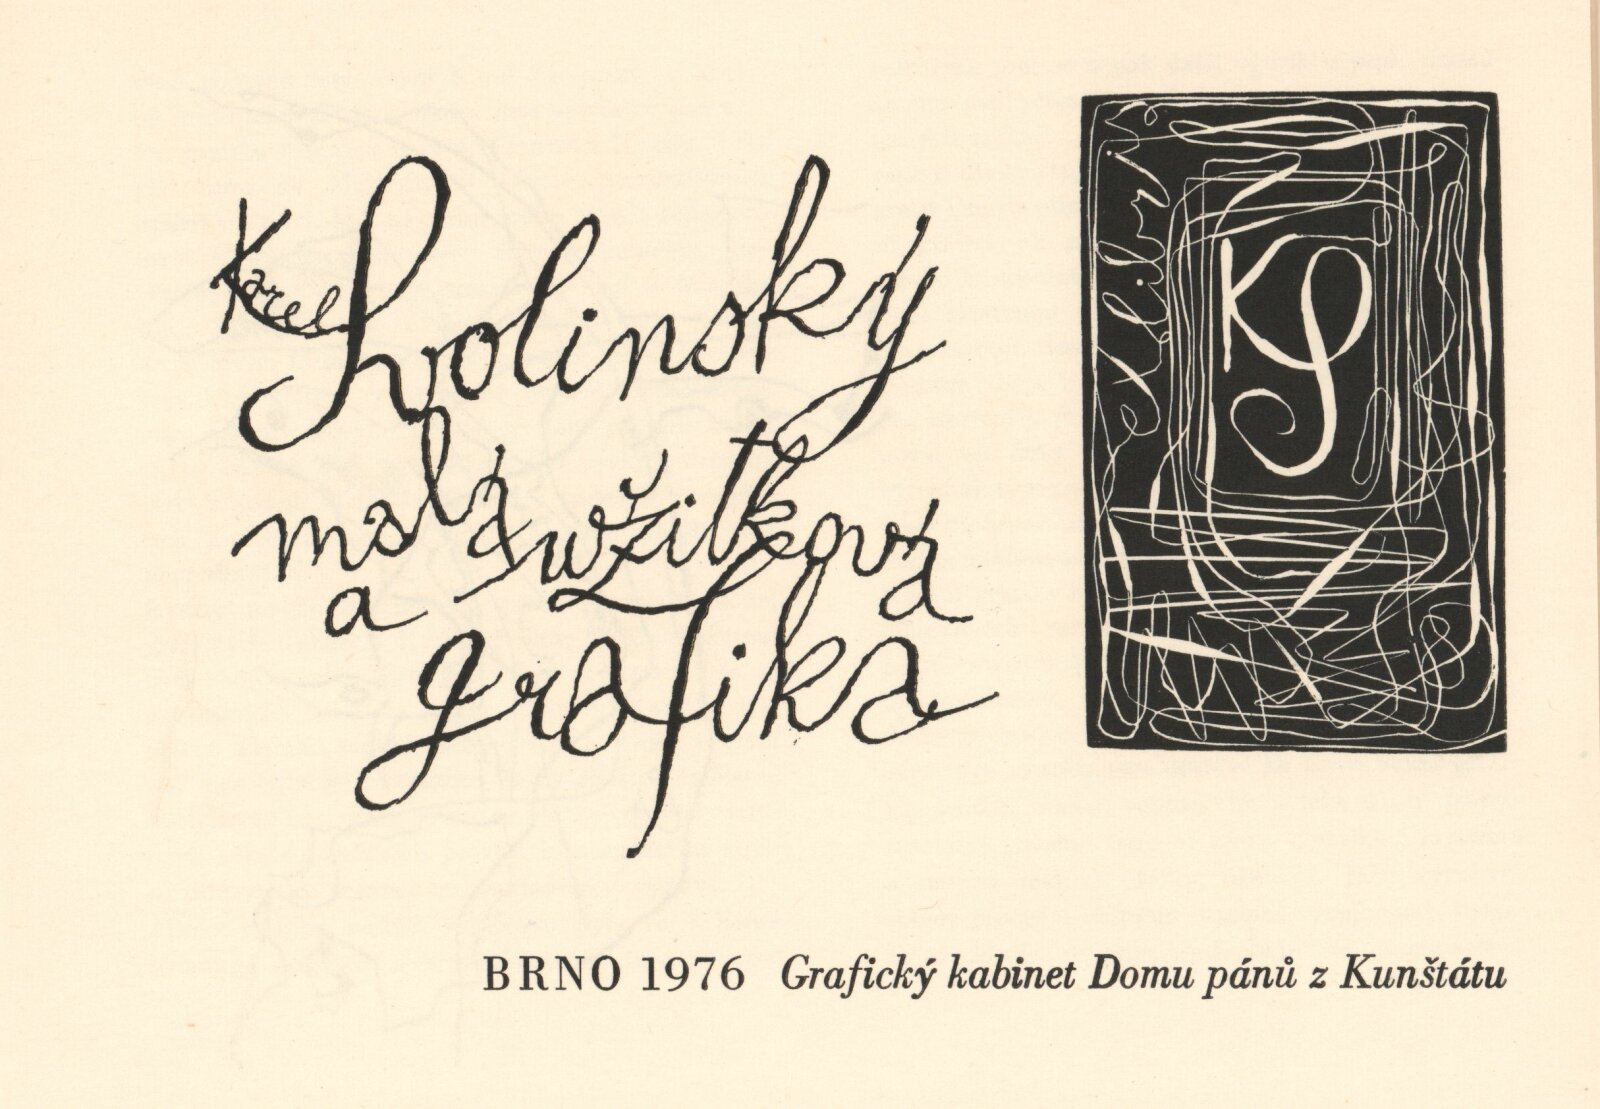 Karel Svolinský
malá užitková
a
grafika
KS
BRNO 1976 Grafický kabinet Domu pánů z Kunštátu